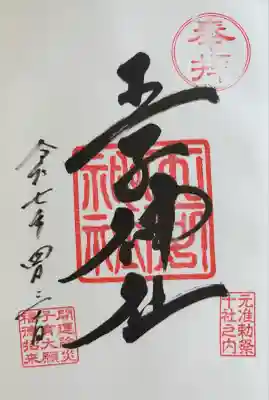 奉拝
王子神社
王子神社
元准勅祭
十社之内
令和七年四月三日
開運除災
子育大願
福徳招来